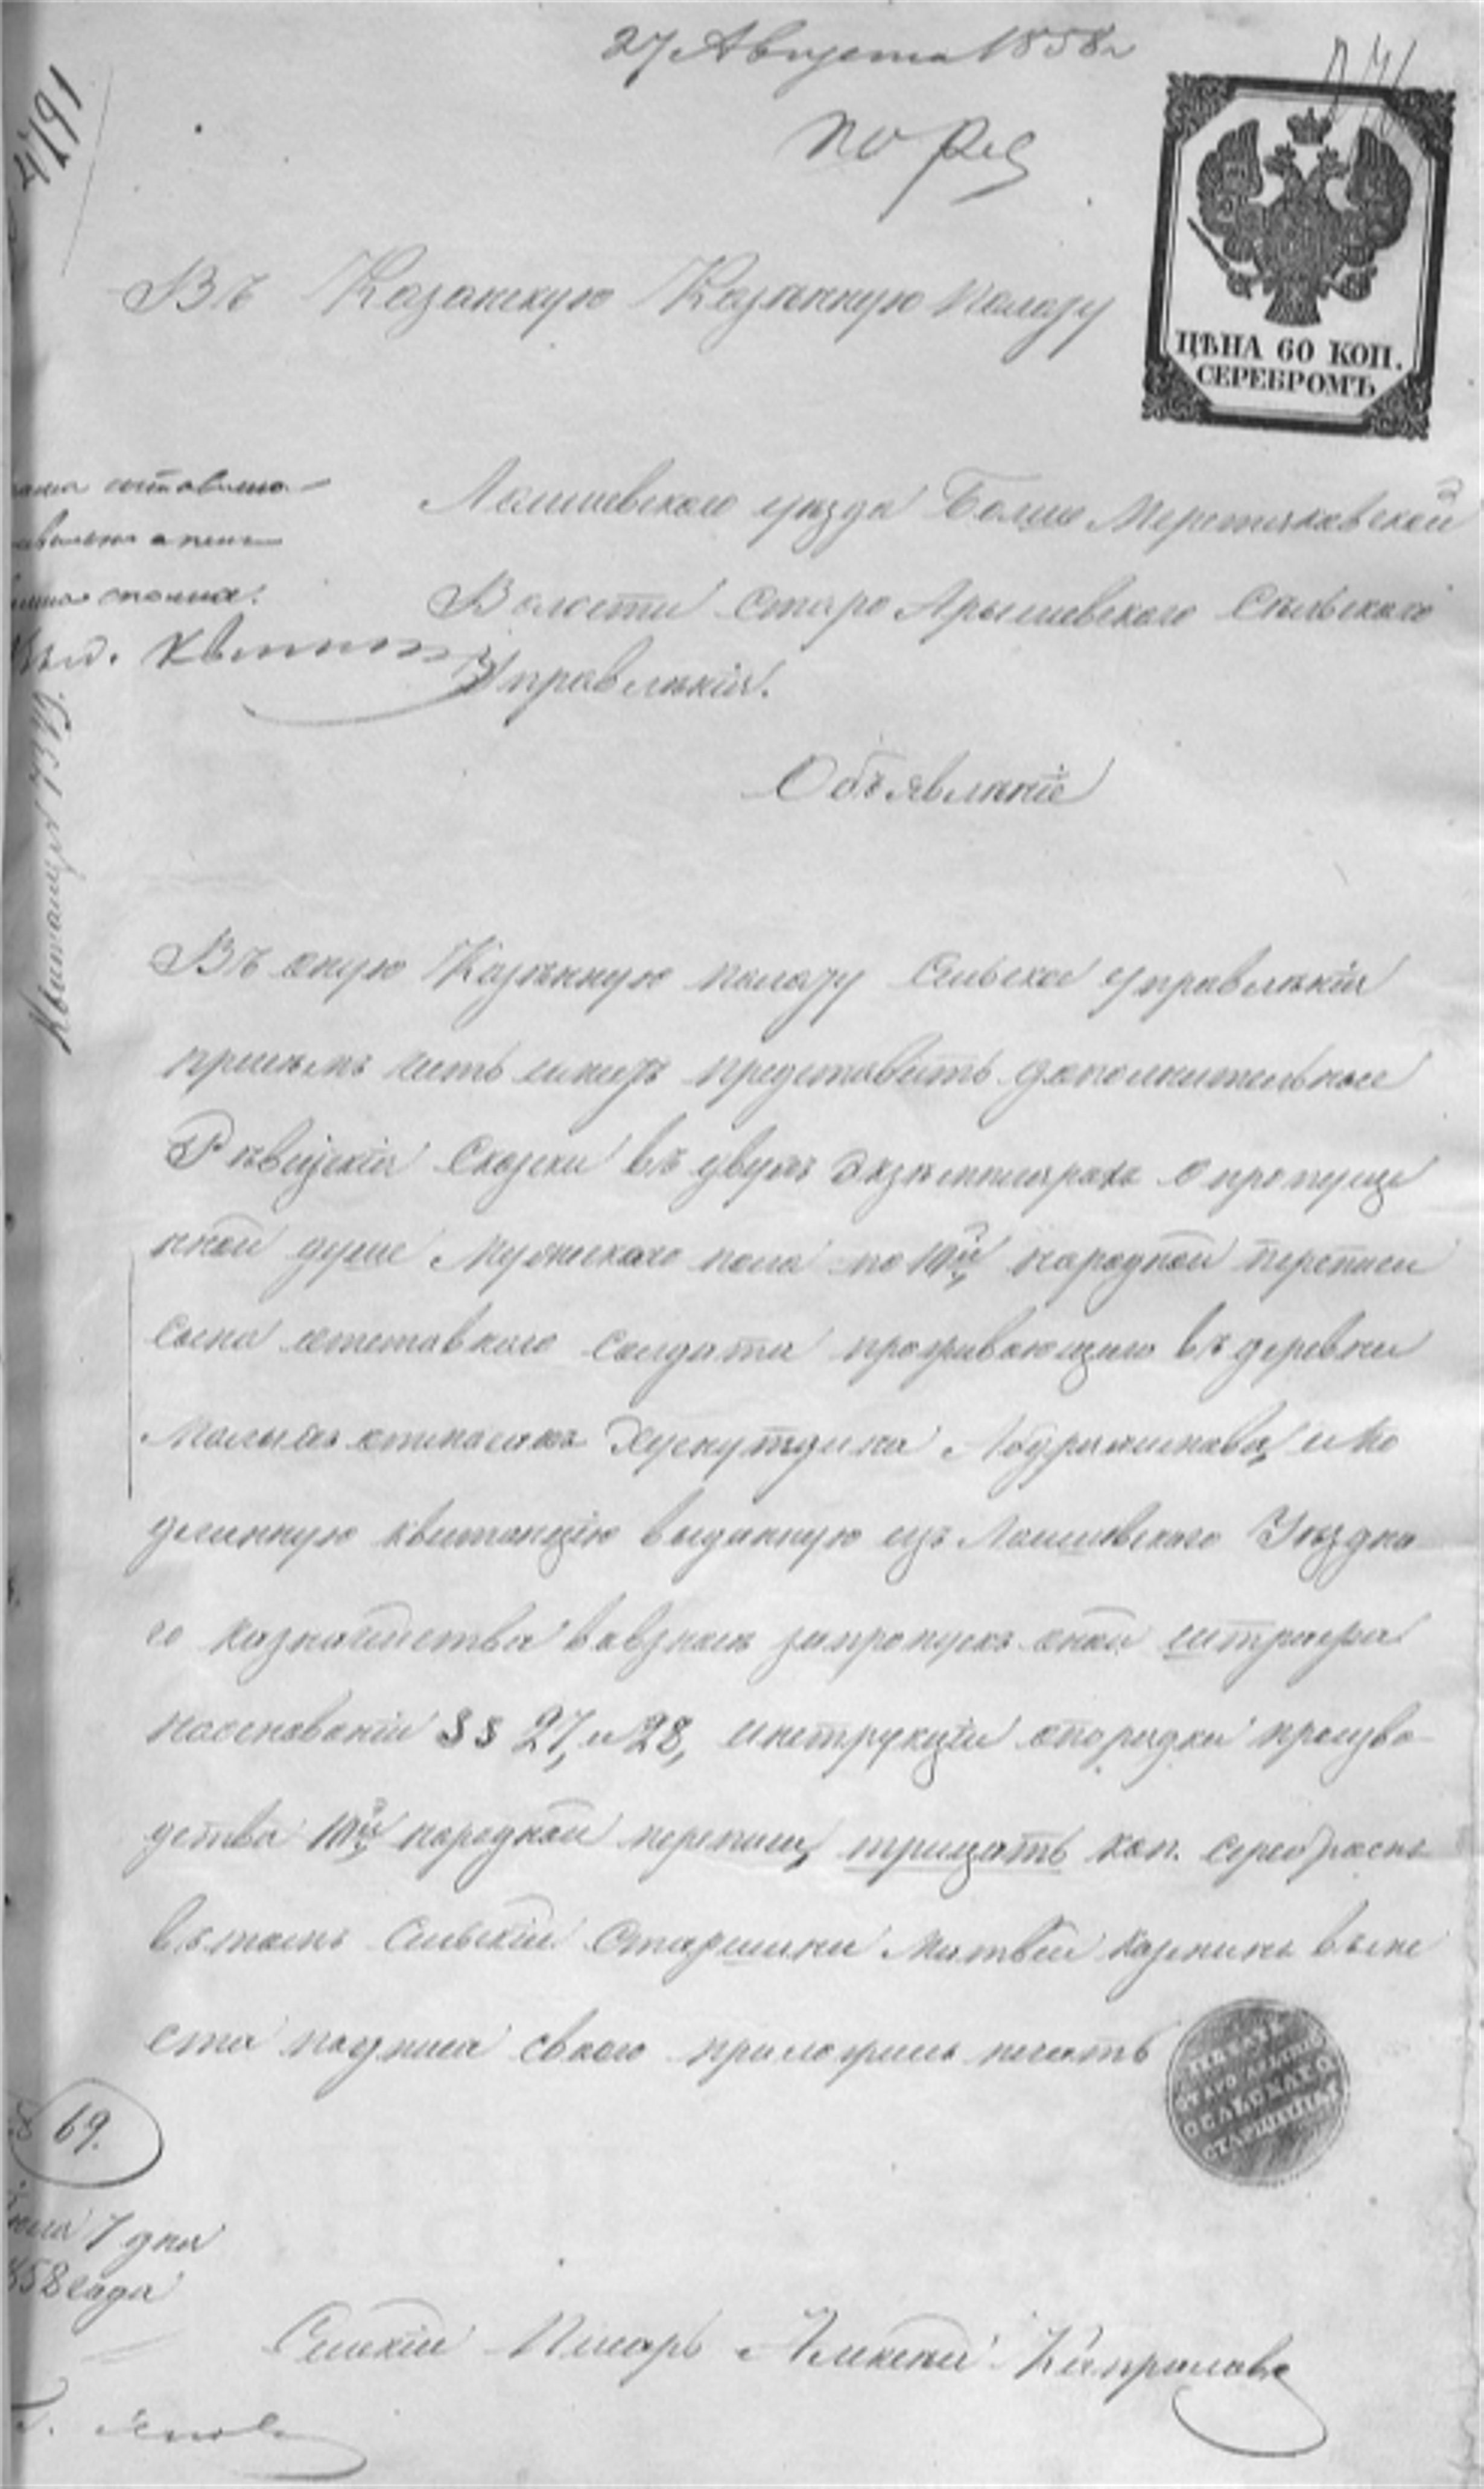 27 Августа 1858 г
4791
по Рев
Въ Казанскую Казенную палату
ЦѢНА 60 КОП.
СЕРЕБРОМЪ
Лаишевскаго уѣзда Больше Меретяковской
Волости Старо Арышевскаго Сельскаго
Управленія.
Объявленіе
Квитанція 7349.
Въ оную Казенную палату Сельское управленія
присемъ честь имѣетъ представить дополнительныя
Ревизскія Сказки въ двухъ экземплярахъ о пропуще
нной душе Мужескаго пола по 10й народной переписи
сына отставнаго солдата проживающаго въ деревни
Малыхъ Хуснутдина Абдрахимова, и по
длинную квитанцію выданную изъ Лаишевскаго Уѣздна
го казначейства вовзносѣ запропускъ оной штрафа
наоснованіи §§ 27, и 28, инструкціи опорядки произво
дства 10й народной переписи, трицать коп. серебромъ
вътомъ Сельскій Старшина Матвей вмѣ
сто подписа своего приложилъ печать
СТАРО
СЕЛЬСКАГО
СТАРШИНЫ
69.
7 дня
1858 года
Сельскій Писарь Алексей Капраловъ